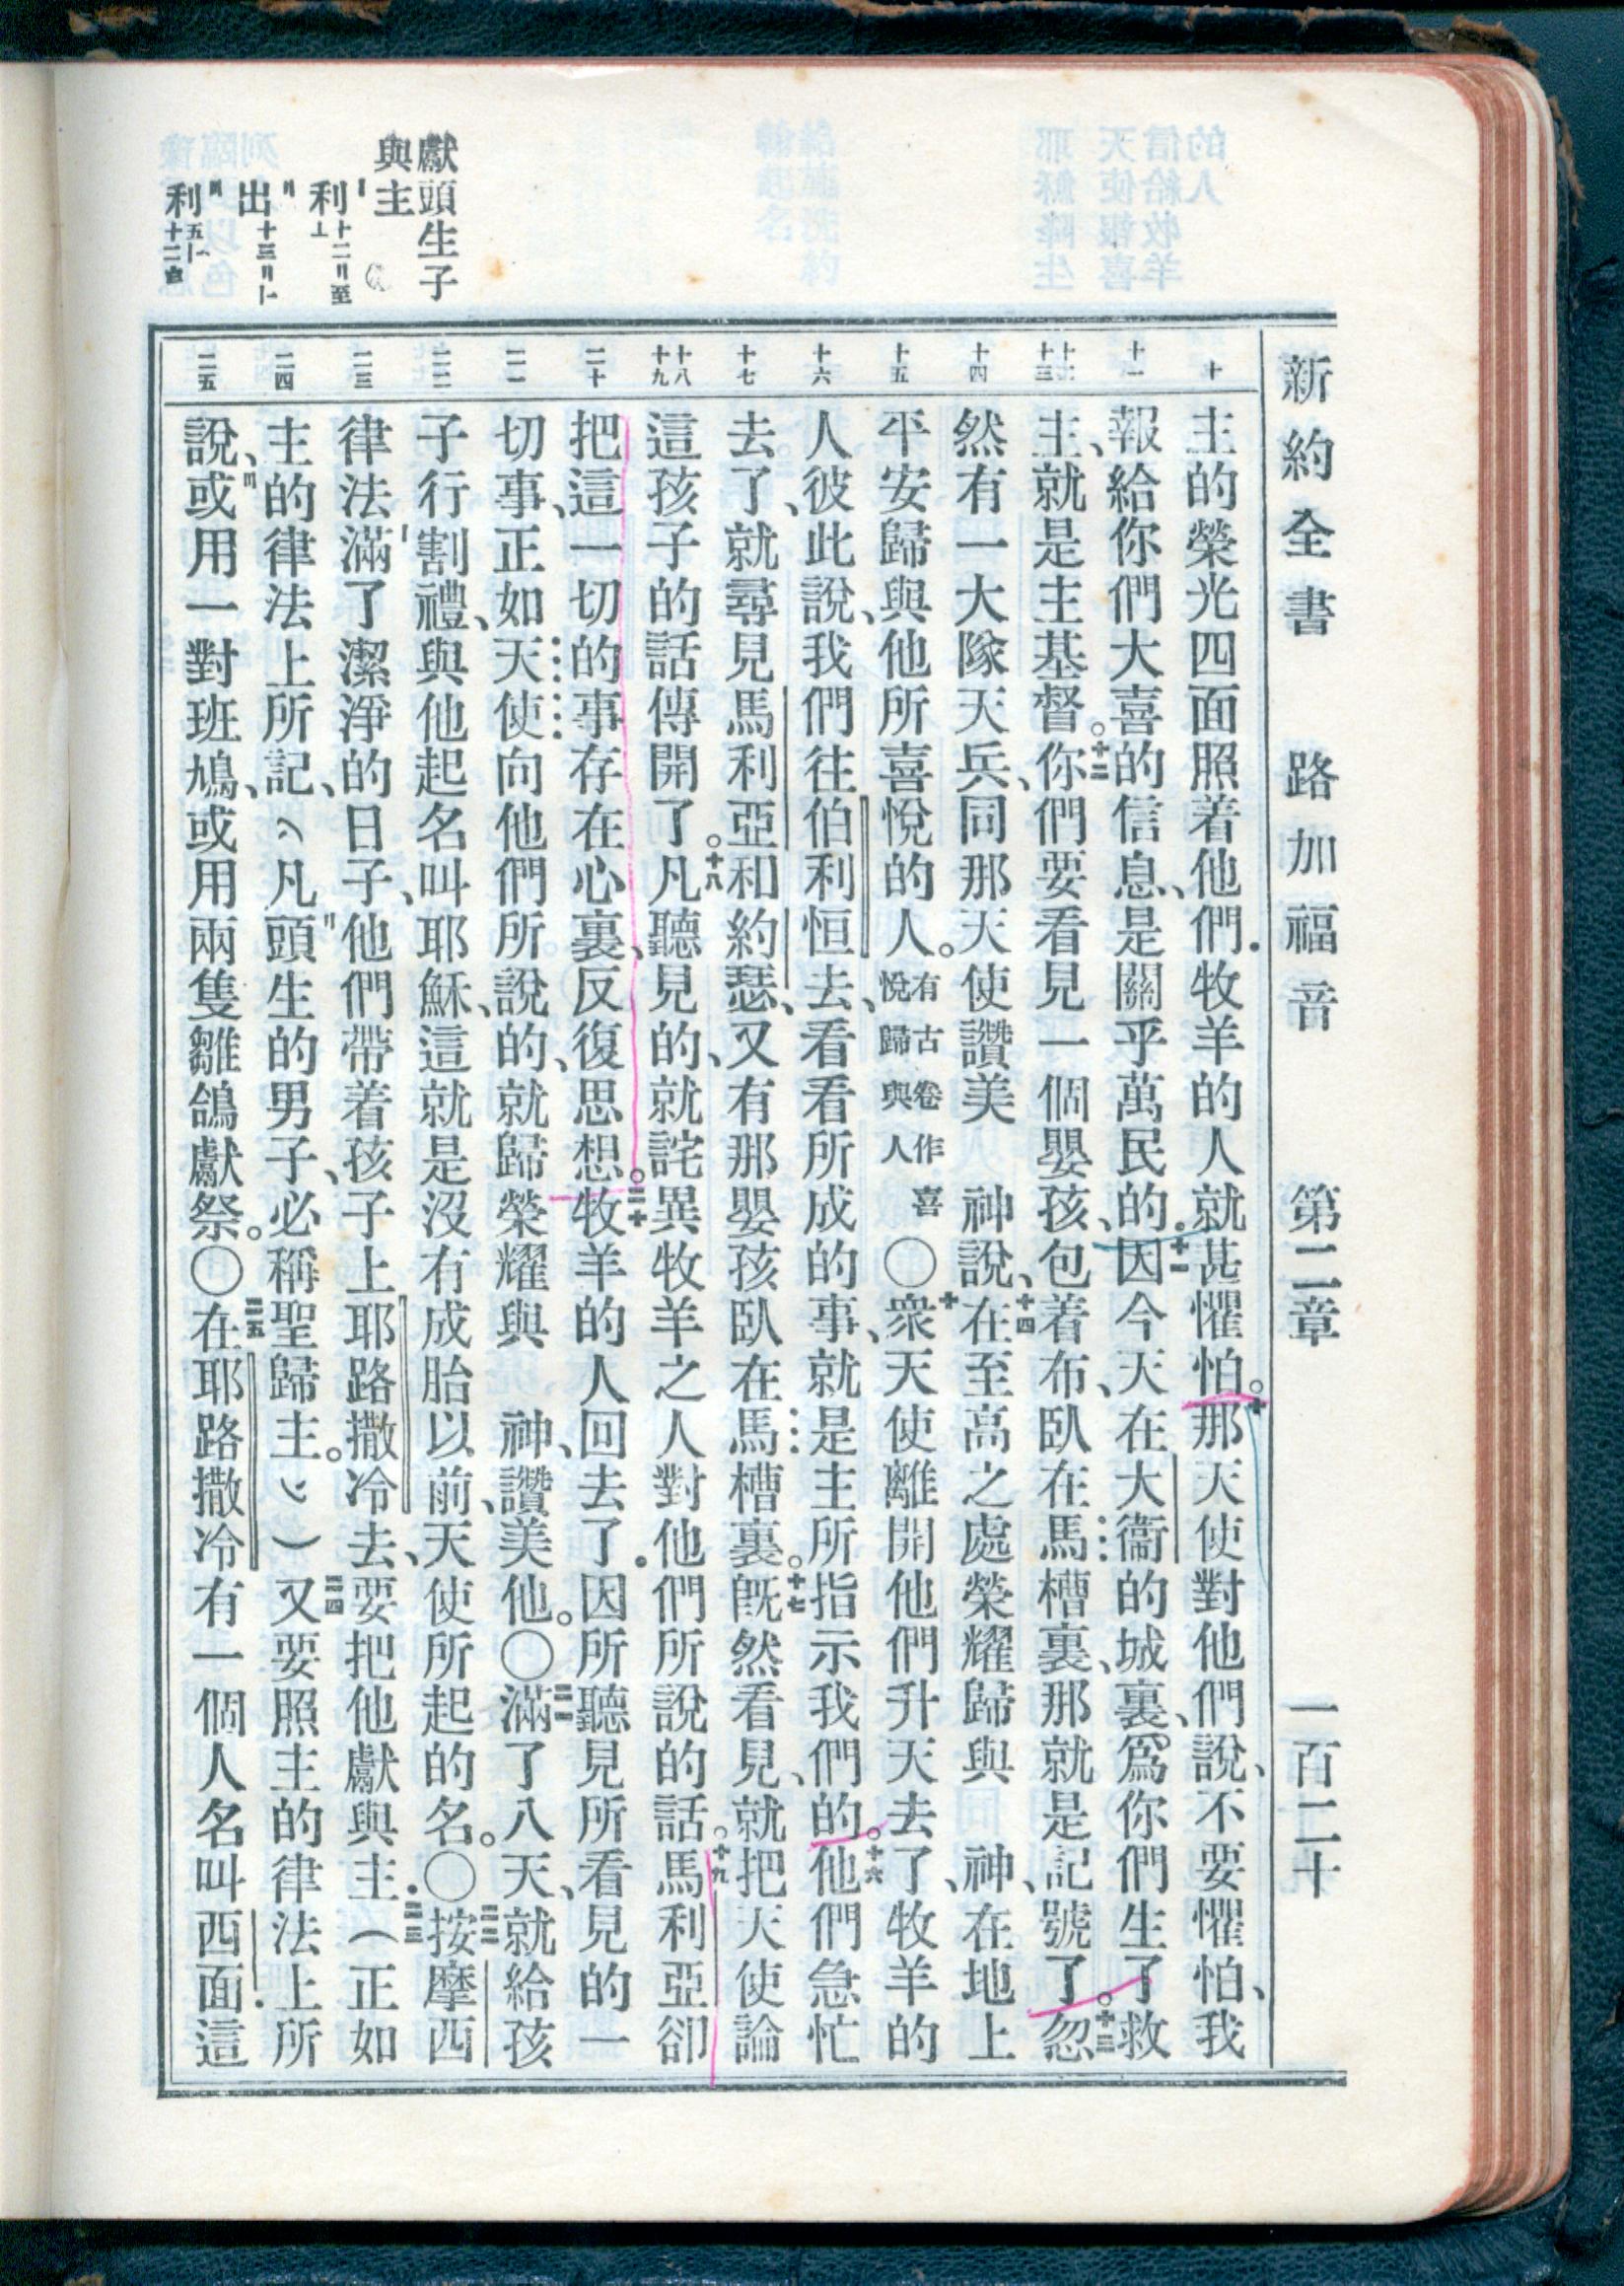 新約全書 路加福音 第二章 一百二十
十
十一
十二
十三
十四
十五
十六
十七
十八
十九
二十
二一
二二
二三
二四
二五
主的榮光四面照着他們．牧羊的人就甚懼怕。十那天使對他們說、不要懼怕、我
報給你們大喜的信息、是關乎萬民的．十一因今天在大衞的城裏、爲你們生了救
主、就是主基督。十二你們要看見一個嬰孩、包着布、臥在馬槽裏、那就是記號了。十三忽
然有一大隊天兵、同那天使讚美 神說、十四在至高之處榮耀歸與 神、在地上
平安歸與他所喜悅的人。有古卷作喜
悅歸與人
〇十五衆天使離開他們升天去了、牧羊的
人彼此說、我們往伯利恒去、看看所成的事、就是主所指示我們的。十六他們急忙
去了、就尋見馬利亞和約瑟、又有那嬰孩臥在馬槽裏。十七旣然看見、就把天使論
這孩子的話傳開了。十八凡聽見的、就詫異牧羊之人對他們所說的話。十九馬利亞卻
把這一切的事存在心裏、反復思想。二十牧羊的人回去了．因所聽見所看見的一
切事、正如天使向他們所說的、就歸榮耀與 神、讚美他。〇二一滿了八天、就給孩
子行割禮、與他起名叫耶穌、這就是沒有成胎以前、天使所起的名。〇二二按摩西
律法滿了潔淨的日子、他們帶着孩子上耶路撒冷去、要把他獻與主．二三（正如
主的律法上所記、（凡頭生的男子、必稱聖歸主。））二四又要照主的律法上所
說、或用一對班鳩、或用兩隻雛鴿獻祭。〇二五在耶路撒冷有一個人名叫西面．這
獻頭生子
與主
利
十二
至
出
十三
利
五
十二